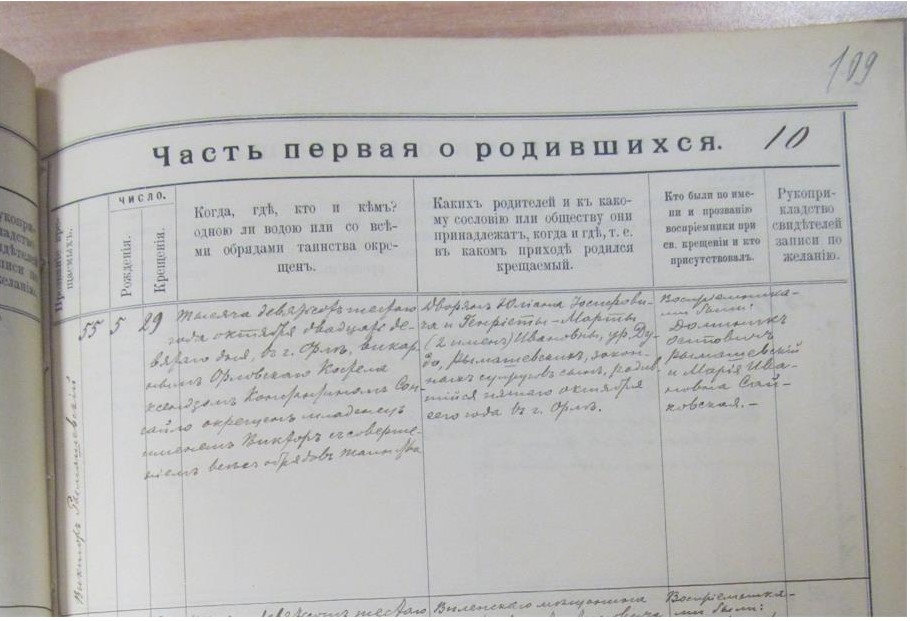 109
Часть первая о родившихся. 10
число.
Рожденія.
Крещенія.
Когда, гдѣ, кто и кѣмъ?
одною ли водою или со всѣ-
ми обрядами таинства окре-
щенъ.
Какихъ родителей и къ како-
му сословію или обществу они
принадлежатъ, когда и гдѣ, т. е.
въ какомъ приходѣ родился
крещаемый.
Кто были по име-
ни и прозванію
воспріемники при
св. крещеніи и кто
присутствовалъ.
Рукопри-
кладство
свидѣтелей
записи по
желанію.
55 5 29
Викторъ
Тысяча девятьсотъ шестого
года октября двадцать де-
вятаго дня, въ г. Орлѣ, викар-
нымъ Орловскаго Костела
Ксендзомъ
окрещенъ младенецъ
именемъ Викторъ съ соверше-
ніемъ всѣхъ обрядовъ таинства
Дворянъ Юліана
и Генріеты-Марты
(2 именъ) Ивановны, ур. Ду-
да, закон-
ныхъ супруговъ сынъ, родив-
шійся пятаго октября
сего года въ г. Орлѣ.
Воспріемника-
ми были:
Доминикъ
Осиповичъ
и Марія Ива-
новна Сай-
ковская. –
шестого
Виленскаго мѣщанина
Воспріемника-
ми были: